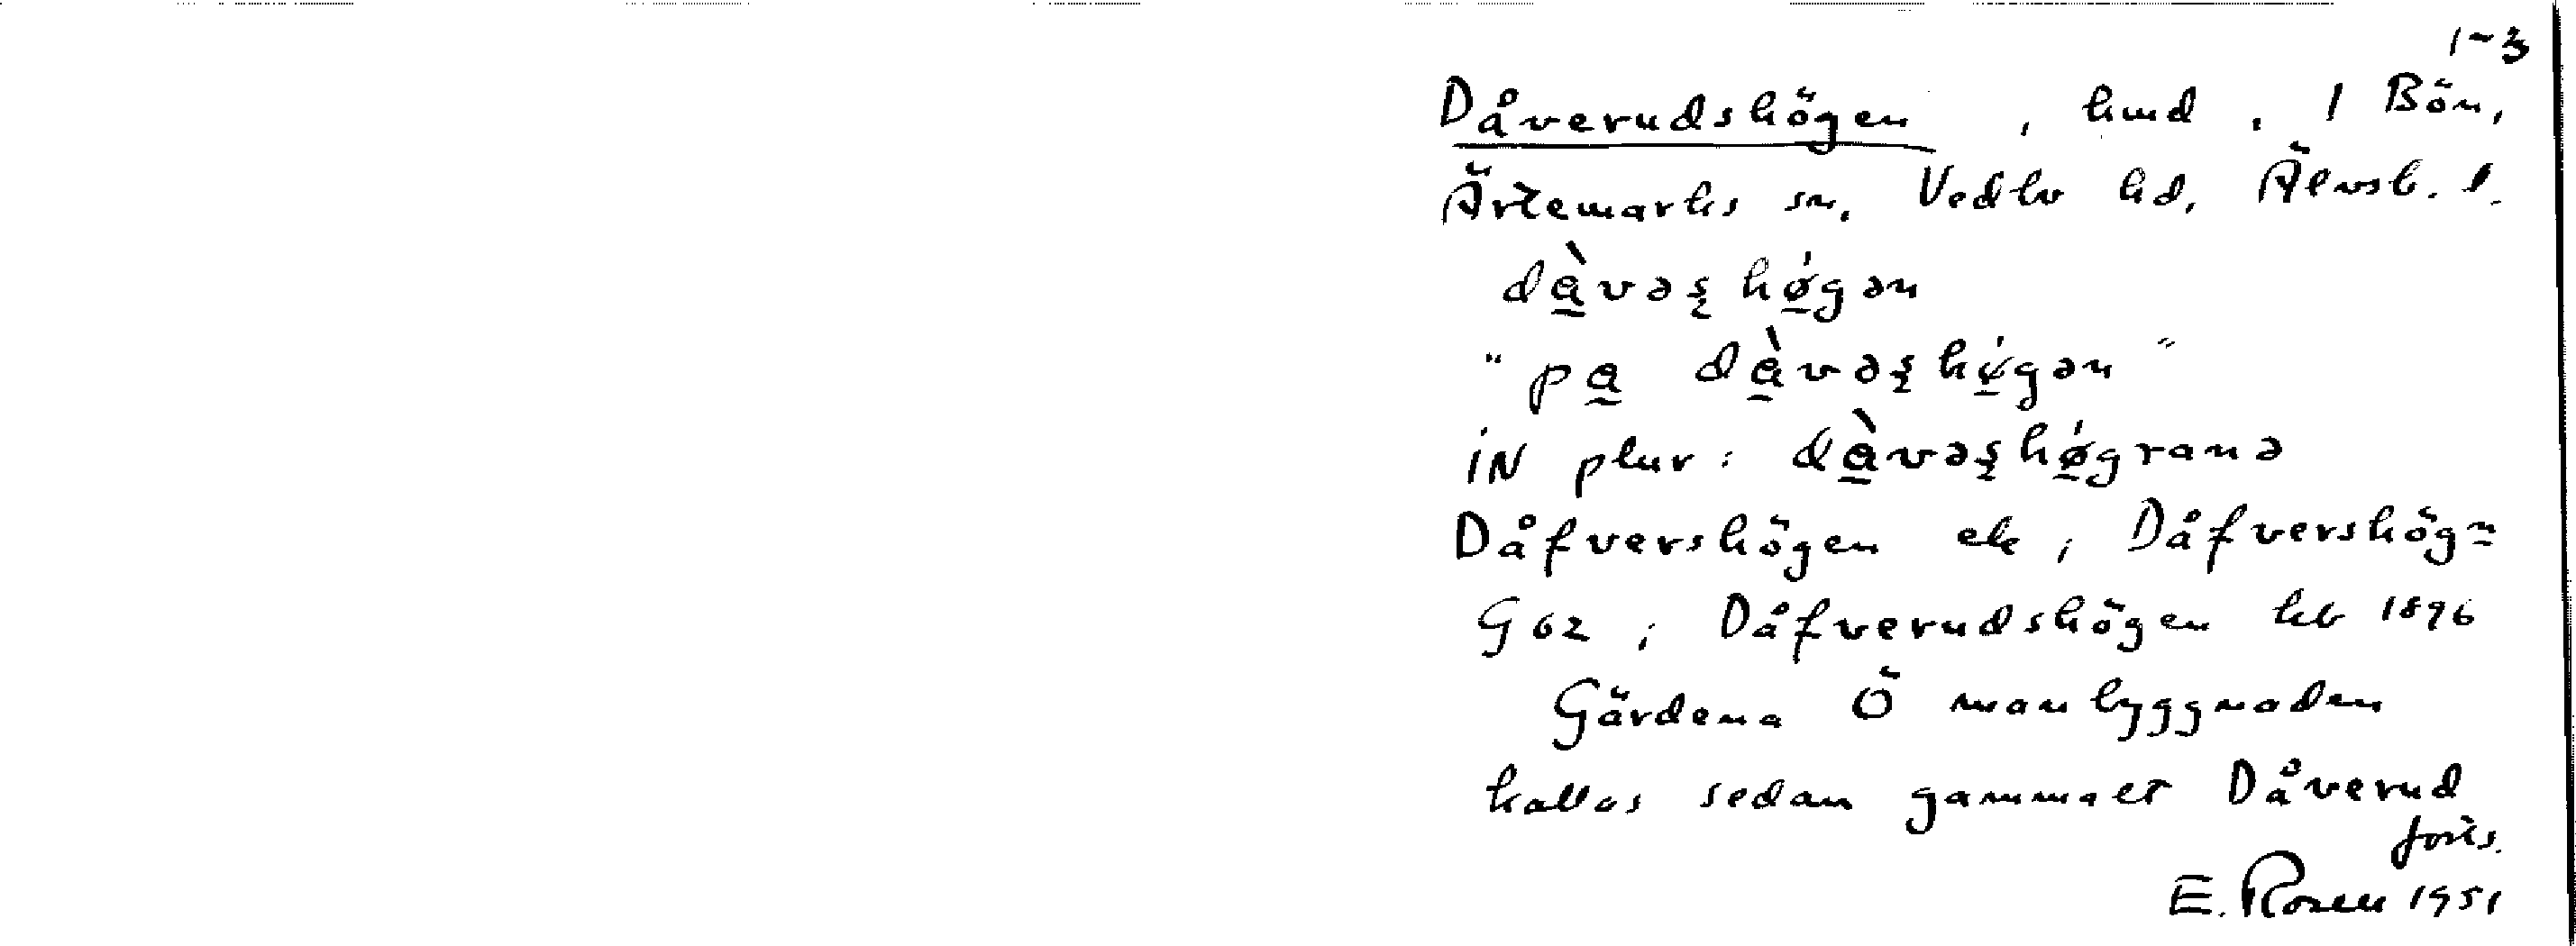 1-3
Dåverudshögen, hmd. 1 Bön,
Ärtemarks sn. Vedbo hd, Älvsb. l.
dàvəʂhǿgən
"pa dàvəʂhǿgən"
iN plur: dàvəʂhǿgranə
Dåfvershögen ek; Dåfvershög-
G 62; Dåfverudshögen kb 1896
Gärdena Ö manbyggnaden
kallas sedan gammalt Dåverud
forts.
E. Rosell 1951